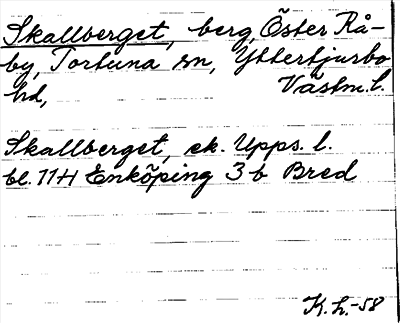 Skallberget, berg, Öster Rå-
by, Tortuna sn, Yttertjurbo
hd, Västm. l.
Skallberget, ek. Upps. l.
bl. 11H Enköping 3 b Bred
K.L.-58